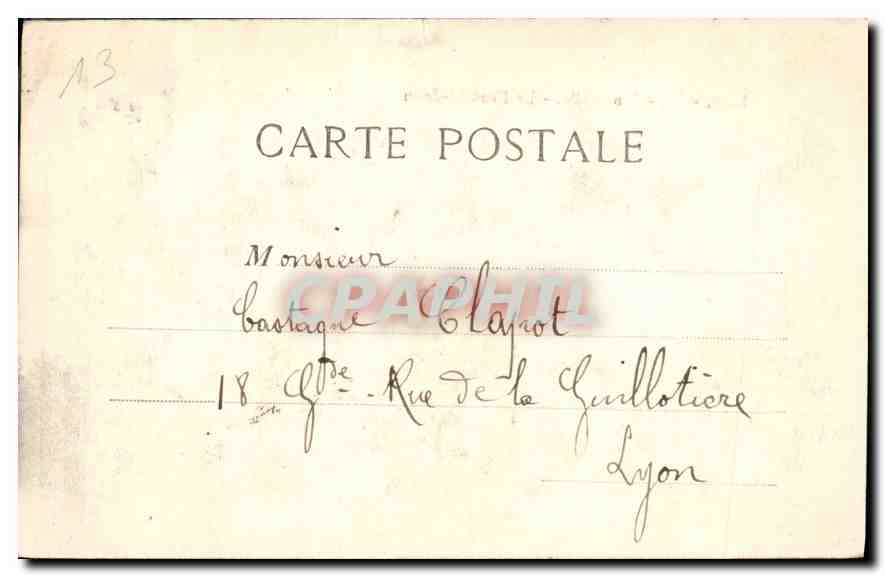 13
CARTE POSTALE
Monsieur
CPAPHIL
Castagne Clapot
18 Gde - Rue de la Guillotière
Lyon